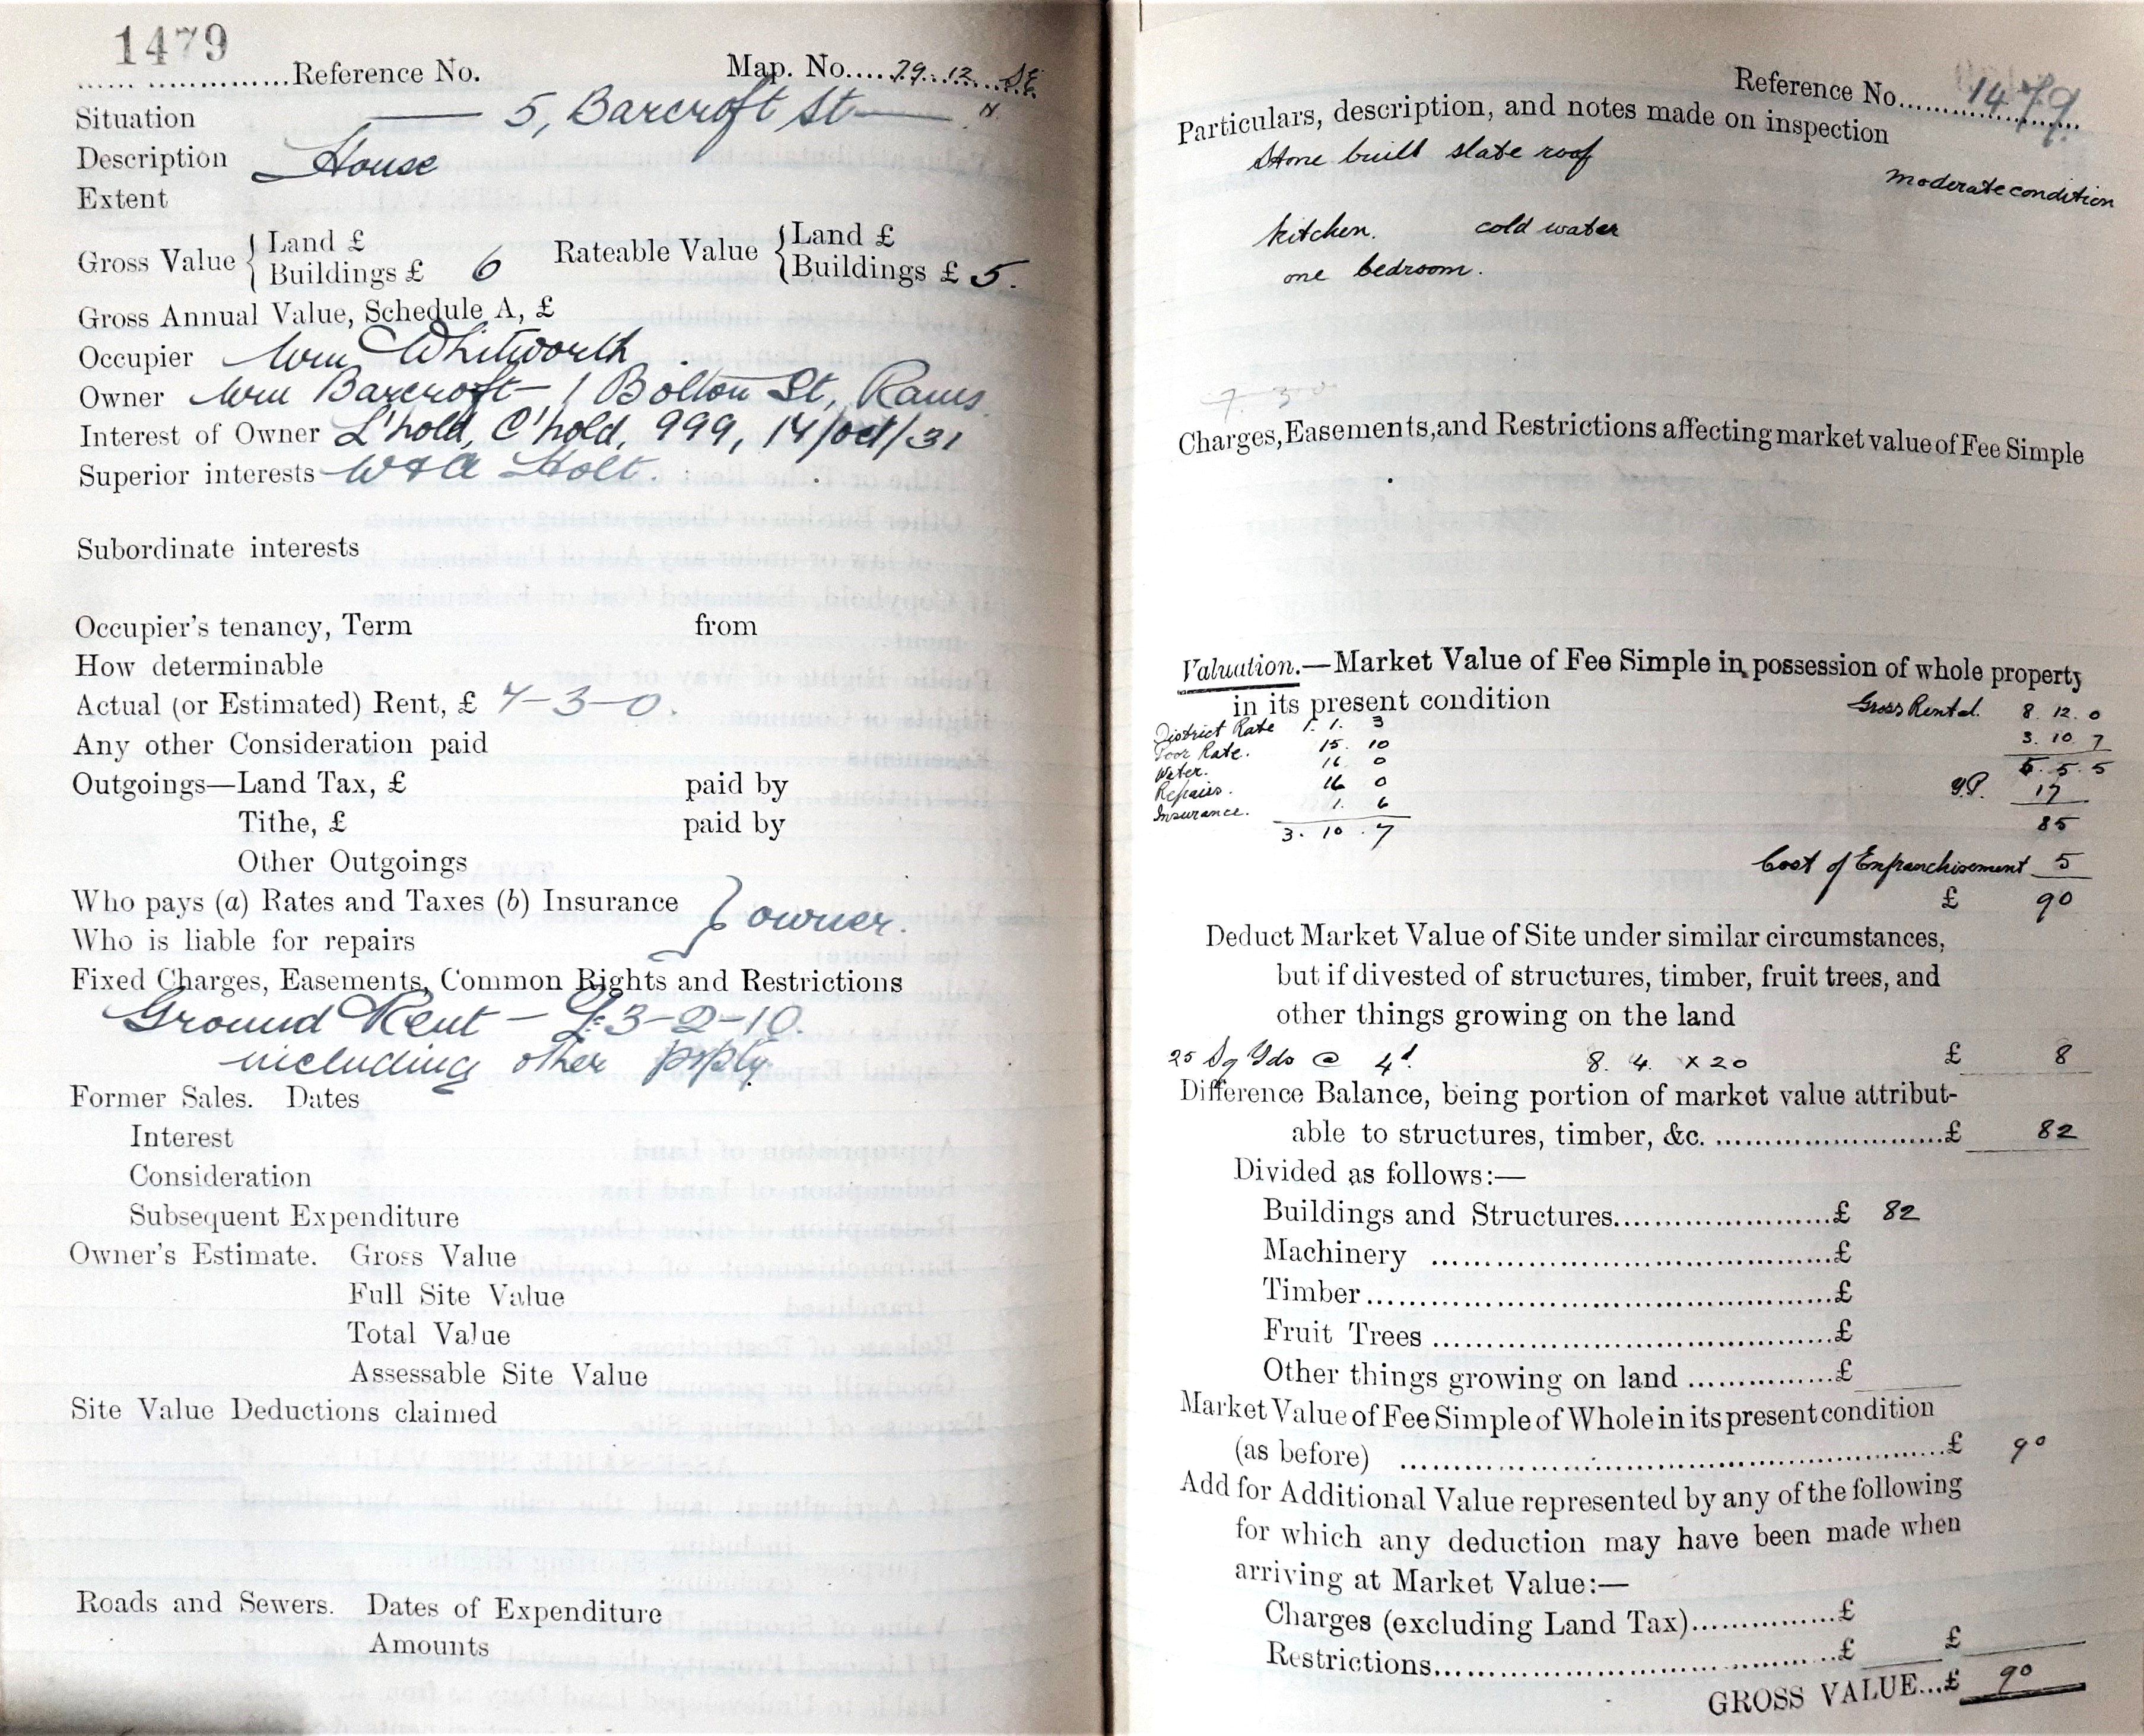 1479
Reference No.    Map. No. 79.12. SE
N.
Situation — 5, Barcroft St —
Description House
Extent
Gross Value { Land £    Rateable Value { Land £
Buildings £ 6    Buildings £ 5.
Gross Annual Value, Schedule A, £
Occupier Wm Whitworth
Owner Wm Barcroft – 1 Bolton St, Rams.
Interest of Owner L'hold, C'hold, 999, 14/oct/31
Superior interests W & A Holt.
Subordinate interests
Occupier's tenancy, Term    from
How determinable
Actual (or Estimated) Rent, £ 7–3–0.
Any other Consideration paid
Outgoings—Land Tax, £    paid by
Tithe, £    paid by
Other Outgoings
Who pays (a) Rates and Taxes (b) Insurance } owner.
Who is liable for repairs
Fixed Charges, Easements, Common Rights and Restrictions
Ground Rent – £3–2–10.
including other ppty.
Former Sales. Dates
Interest
Consideration
Subsequent Expenditure
Owner's Estimate. Gross Value
Full Site Value
Total Value
Assessable Site Value
Site Value Deductions claimed
Roads and Sewers. Dates of Expenditure
Amounts
Reference No. 1479.
Particulars, description, and notes made on inspection
Stone built slate roof
moderate condition
kitchen.    cold water
one bedroom.
7. 3. 0
Charges, Easements, and Restrictions affecting market value of Fee Simple
Valuation.—Market Value of Fee Simple in possession of whole property
in its present condition
Gross Rental. 8. 12. 0
District Rate 1. 1. 3
3. 10. 7
Poor Rate. 15. 10
5. 5. 5
Water. 16 0
Y.P. 17
Repairs. 16 0
Insurance. 1. 6
85
3. 10. 7
Cost of Enfranchisement 5
£ 90
Deduct Market Value of Site under similar circumstances,
but if divested of structures, timber, fruit trees, and
other things growing on the land
25 Sq Yds @ 4d.    8. 4. x 20    £ 8
Difference Balance, being portion of market value attribut-
able to structures, timber, &c. £ 82
Divided as follows:—
Buildings and Structures £ 82
Machinery £
Timber £
Fruit Trees £
Other things growing on land £
Market Value of Fee Simple of Whole in its present condition
(as before) £ 90
Add for Additional Value represented by any of the following
for which any deduction may have been made when
arriving at Market Value:—
Charges (excluding Land Tax) £
Restrictions £    £
GROSS VALUE...£ 90